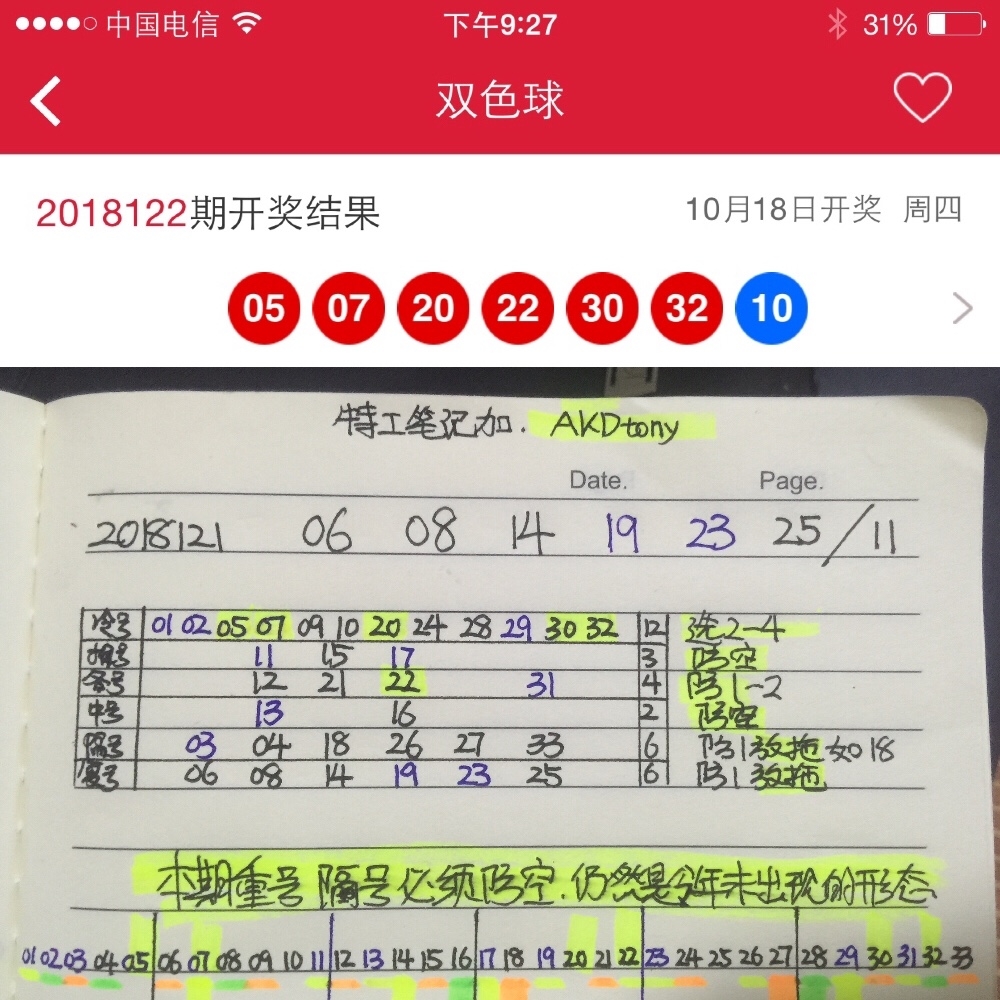 中国电信 下午9:27 31%
双色球
2018122期开奖结果 10月18日开奖 周四
05 07 20 22 30 32 10
特工笔记加. AKDtony
Date. Page.
2018121 06 08 14 19 23 25/11
冷号 01 02 05 07 09 10 20 24 28 29 30 32 12 选2-4
11 15 17 3 防空
12 21 22 31 4 防1-2
中号 13 16 2 防空
隔号 03 04 18 26 27 33 6 防1放拖如18
重号 06 08 14 19 23 25 6 防1放拖
本期重号 隔号必须防空.仍然是今年未出现的形态
01 02 03 04 05 06 07 08 09 10 11 12 13 14 15 16 17 18 19 20 21 22 23 24 25 26 27 28 29 30 31 32 33